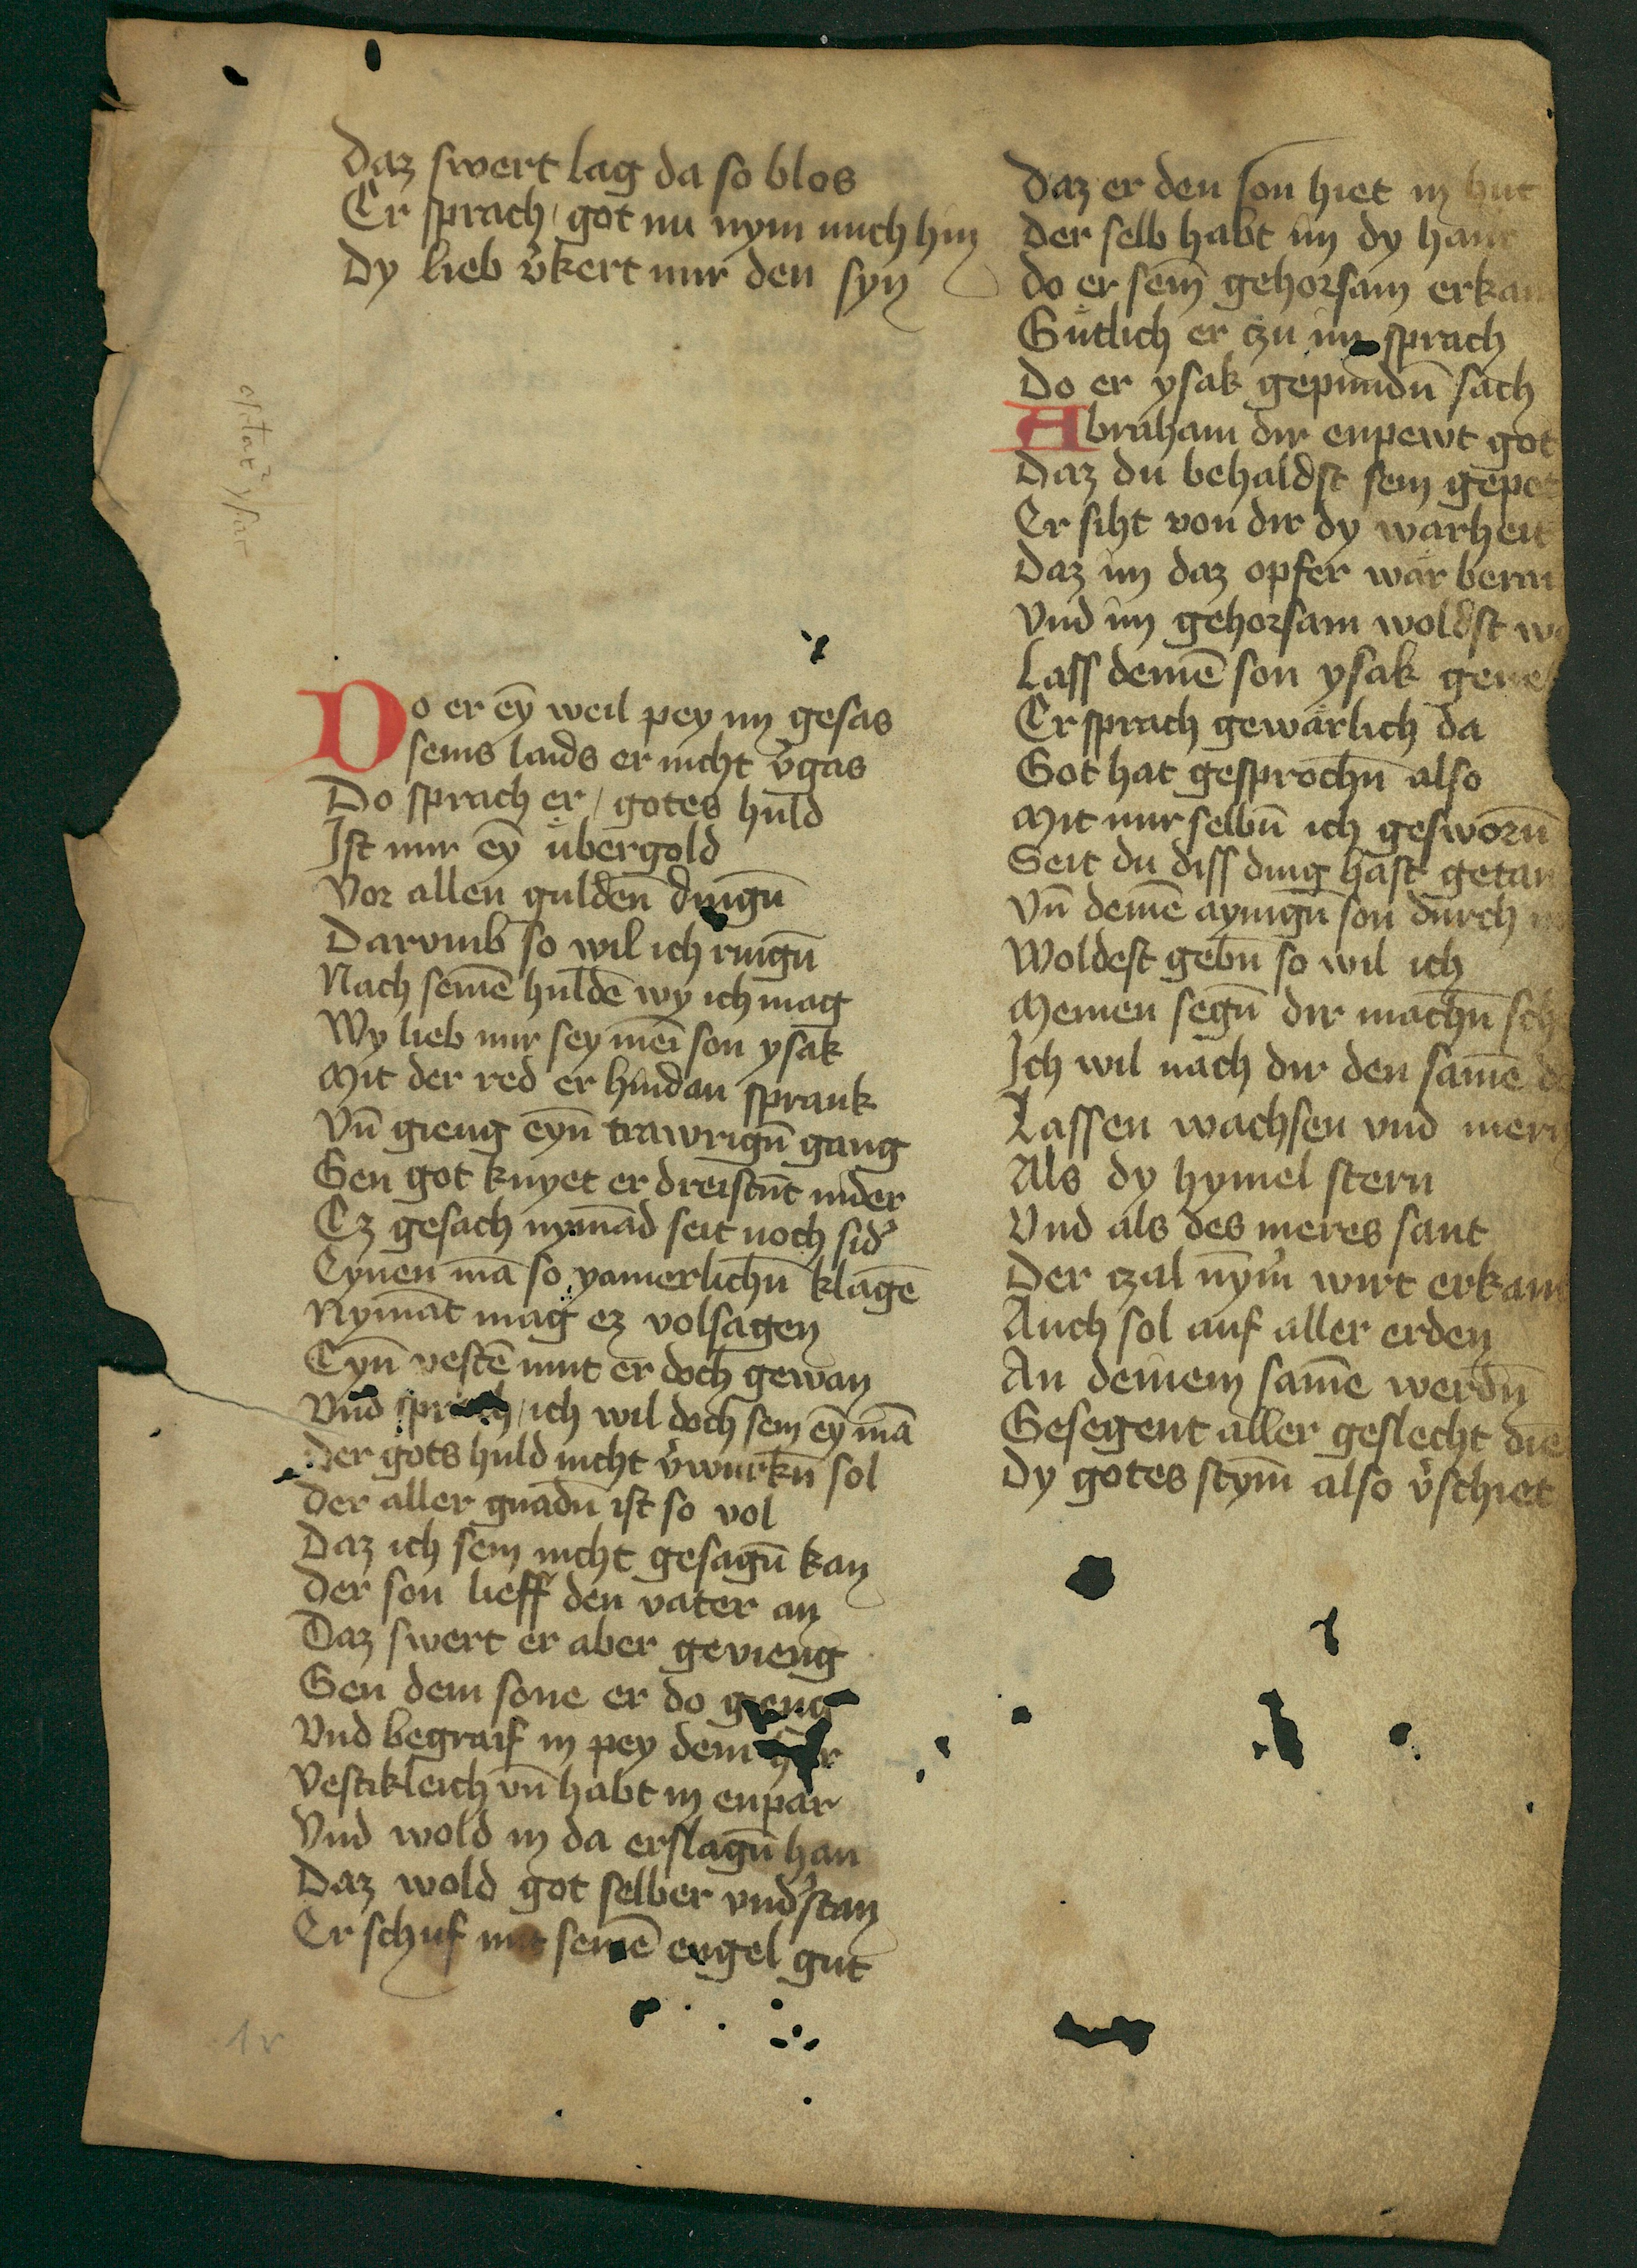 Daz swert lag da so blos
Er sprach / got nu nym mich hin
Dy lieb v̄kert mir den syn
Do er eȳ weil pey im gesas
seins laids er nicht v̄gas
Do sprach er / gotes huld
Ist mir eȳ übergold
Vor allen guldeñ dingn̄
Darvmb so wil ich ringn̄
Nach seinē huldē wy ich mag
Wy lieb mir sey mei son ysak
Mit der red er hindan sprank
Vn̄ gieng eyn̄ trawrign̄ gang
Gen got knyet er dreistūt nider
Ez gesach nymād seit noch sid̓
Eynen mā so yamerlichn̄ klagē
Nymāt mag ez volsagen
Eyn̄ vestē mut er doch gewan
Vnd sprach / ich wil doch sein eȳ mā
Der gots huld nicht v̄wurkn̄ sol
Der aller gnadn̄ ist so vol
Daz ich sein nicht gesagn̄ kan
Der son lieff den vater an
Daz swert er aber gevieng
Gen dem sone er do gieng
Vnd begraif in pey dem har
Vestikleich vn̄ habt in enpar
Vnd wold in da erslagn̄ han
Daz wold got selber vnd̓stan
Er schuf mit seinē engel gut
Daz er den son hiet in hut
Der selb habt im dy hant
Do er sein̄ gehorsam erkan
Gütlich er czu im sprach
Do er ysak gepundn̄ sach
Abraham dir enpewt got
Daz du behaldst sein gepot
Er siht von dir dy warheit
Daz im daz opfer wär berai
Vnd im gehorsam woldst w
Lass deinē son ysak gene
Er sprach gewärlich da
Got hat gesprochn̄ also
Mit mir selbn̄ ich gesworn̄
Seit du diss ding hast getan
Vn̄ deinē aynign̄ son durch m
Woldest gebn̄ so wil ich
Meinen segn̄ dir machn̄ sch
Ich wil nach dir den samē d
Lassen wachsen vnd mern
Als dy hymel stern
Vnd als des meres sant
Der czal nym̄̓ wirt erkant
Auch sol auf aller erden
An deinem samē werdn̄
Gesegent aller geslecht die
Dy gotes stym̄ also v̓schiet
1r